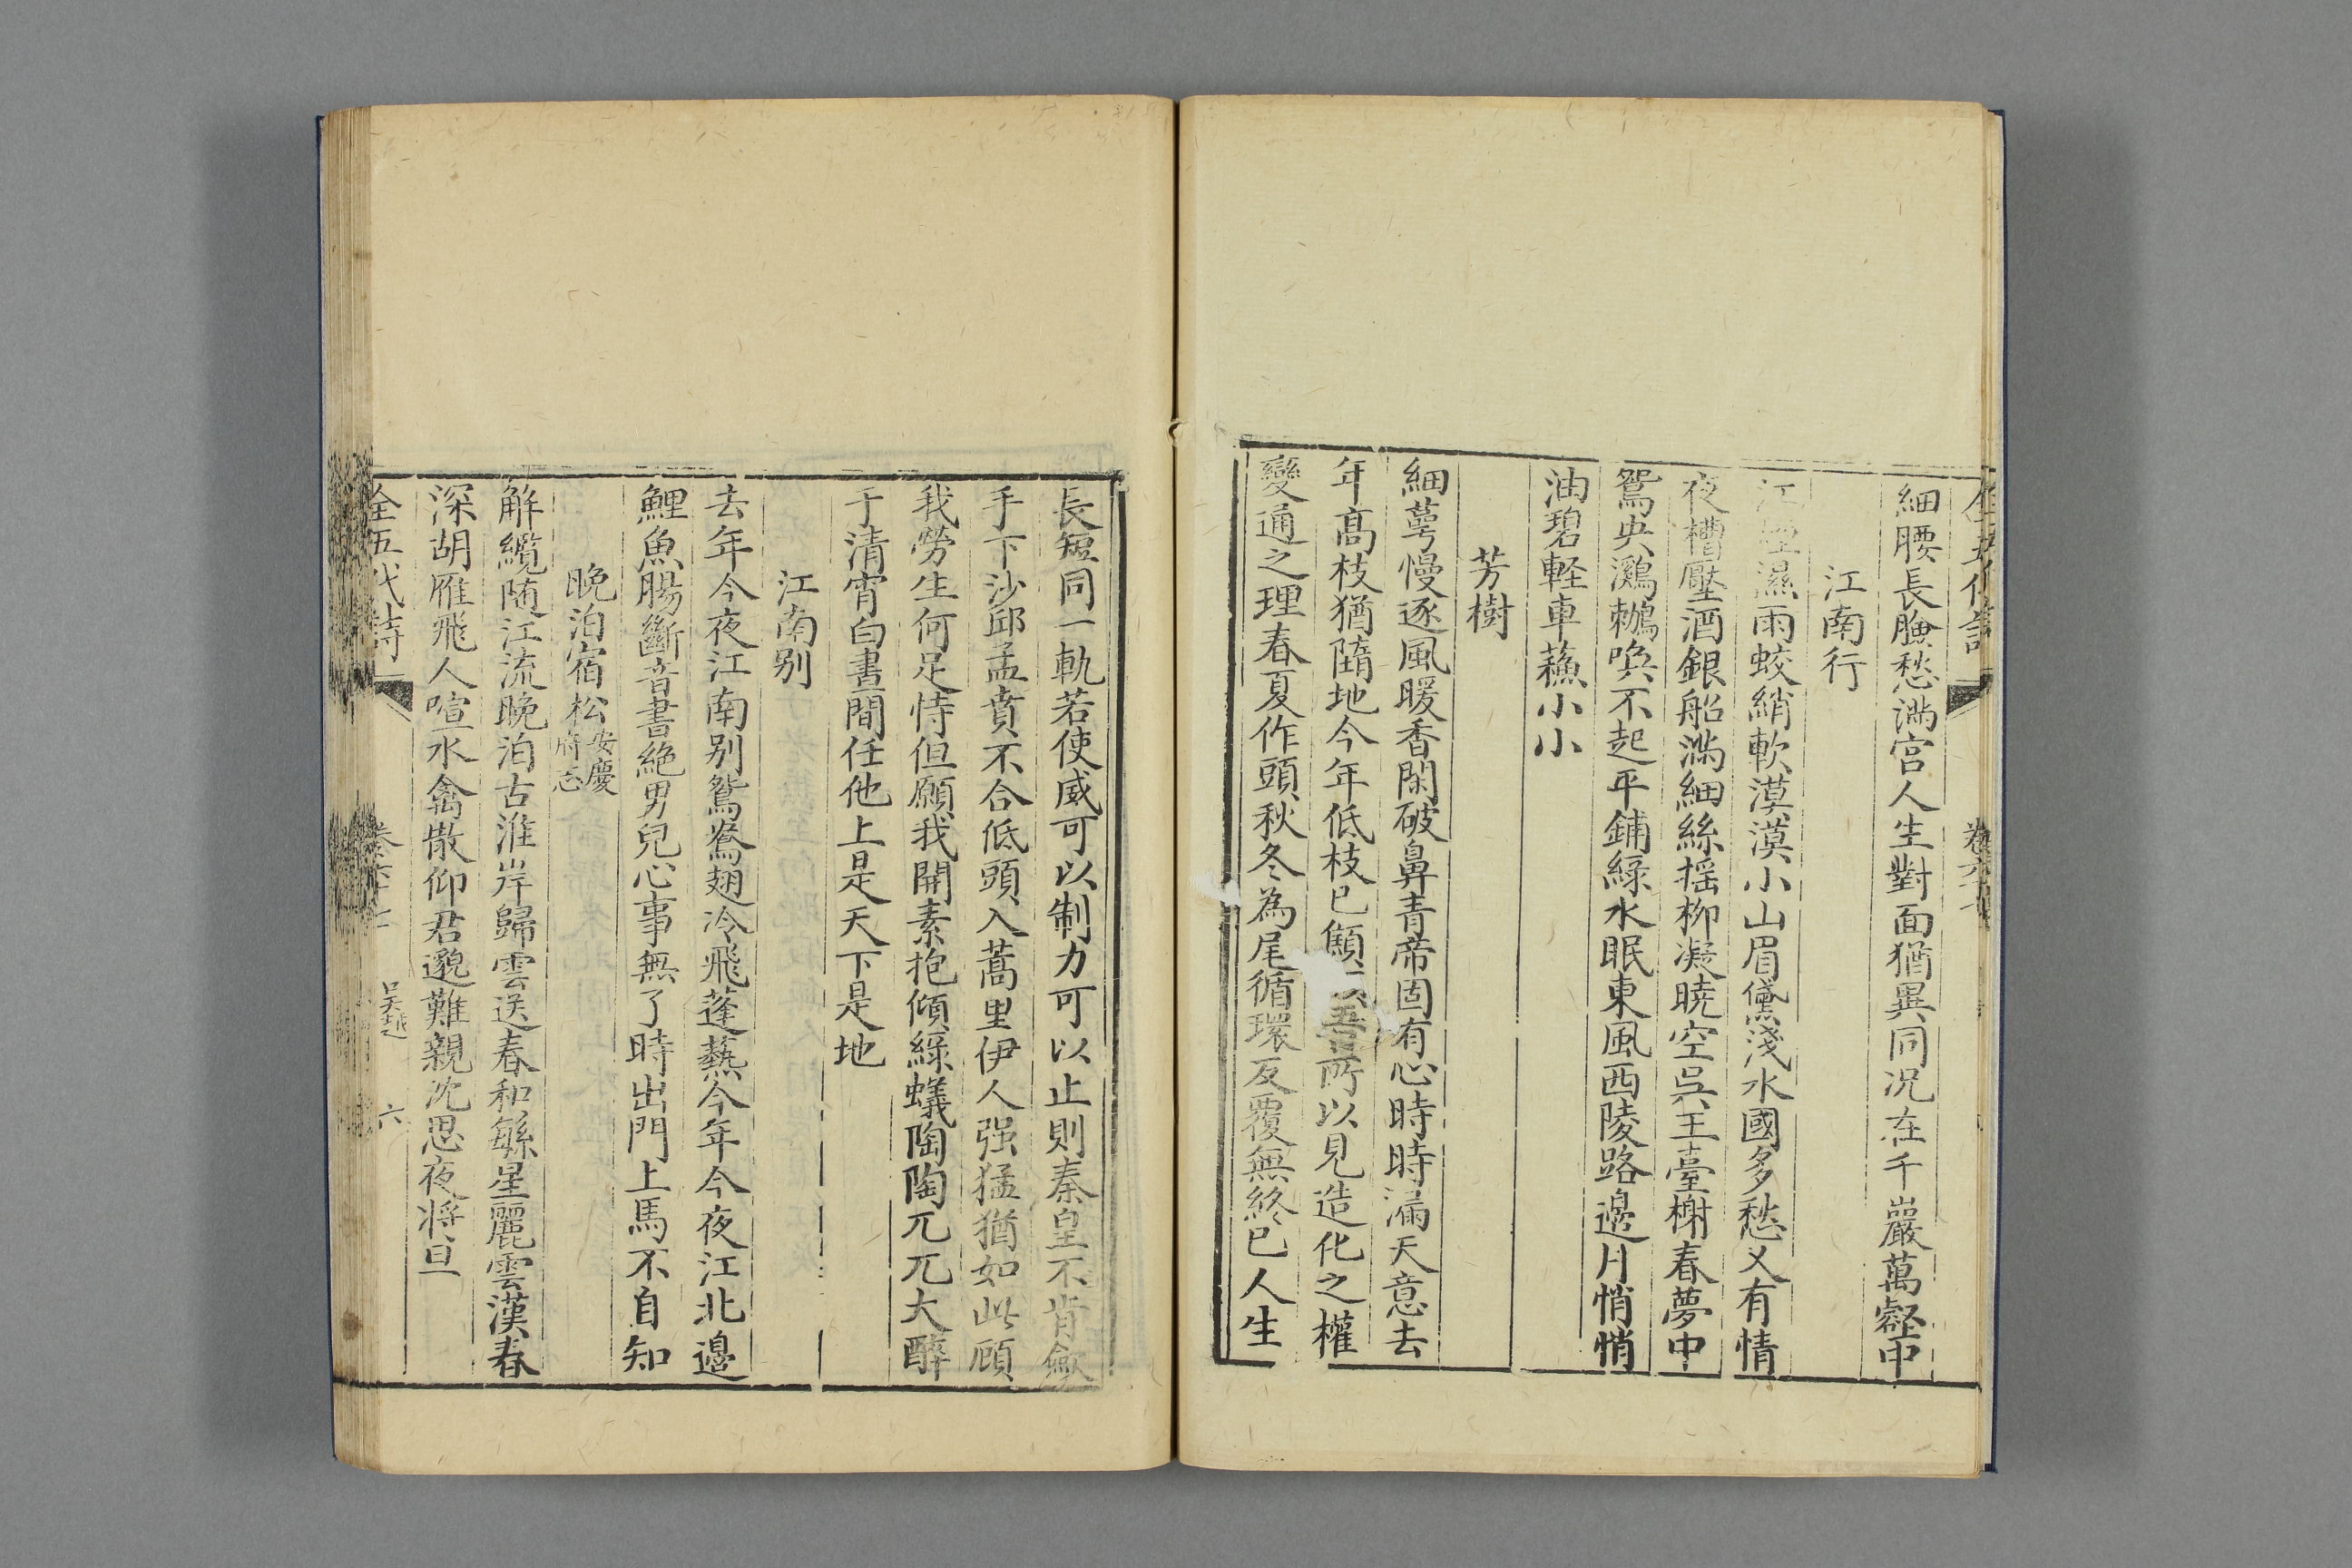 全五代詩 卷六十七
細腰長臉愁滿宮人生對面猶異同况在千巖萬壑中
江南行
江煙濕雨蛟綃軟漠漠小山眉黛淺水國多愁又有情
夜槽壓酒銀船滿細絲搖柳凝曉空吳王臺榭春夢中
鴛央鸂鶒喚不起平鋪綠水眠東風西陵路邊月悄悄
油碧軽車蘓小小
芳樹
細萼慢逐風暖香閑破鼻青帝固有心時時漏天意去
年髙枝猶隨地今年低枝已顦吾所以見造化之權
變通之理春夏作頭秋冬為尾循環反覆無終已人生
長短同一軌若使威可以制力可以止則秦皇不肯斂
手下沙邱孟賁不合低頭入蒿里伊人强猛猶如此顧
我勞生何足恃但願我開素抱傾綠蟻陶陶兀兀大醉
于清宵白晝間任他上是天下是地
江南别
去年今夜江南别鴛鴦翅冷飛蓬爇今年今夜江北邉
鯉魚腸斷音書絶男兒心事無了時出門上馬不自知
晚泊宿松安慶府志
解纜随江流晚泊古淮岸歸雲送春和緐星麗雲漢春
深胡雁飛人喧水禽散仰君邈難親沈思夜將旦
全五代詩 卷六十七 吳越 六